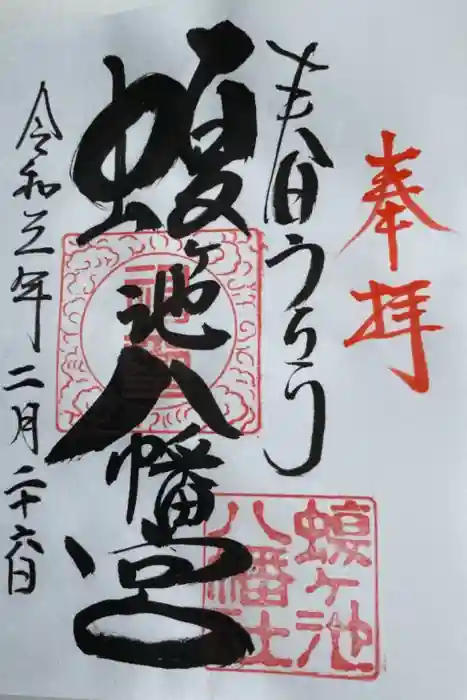 奉拝
春日うらら
蝮ヶ池八幡宮
令和三年二月二十六日
蝮ヶ池
八幡社